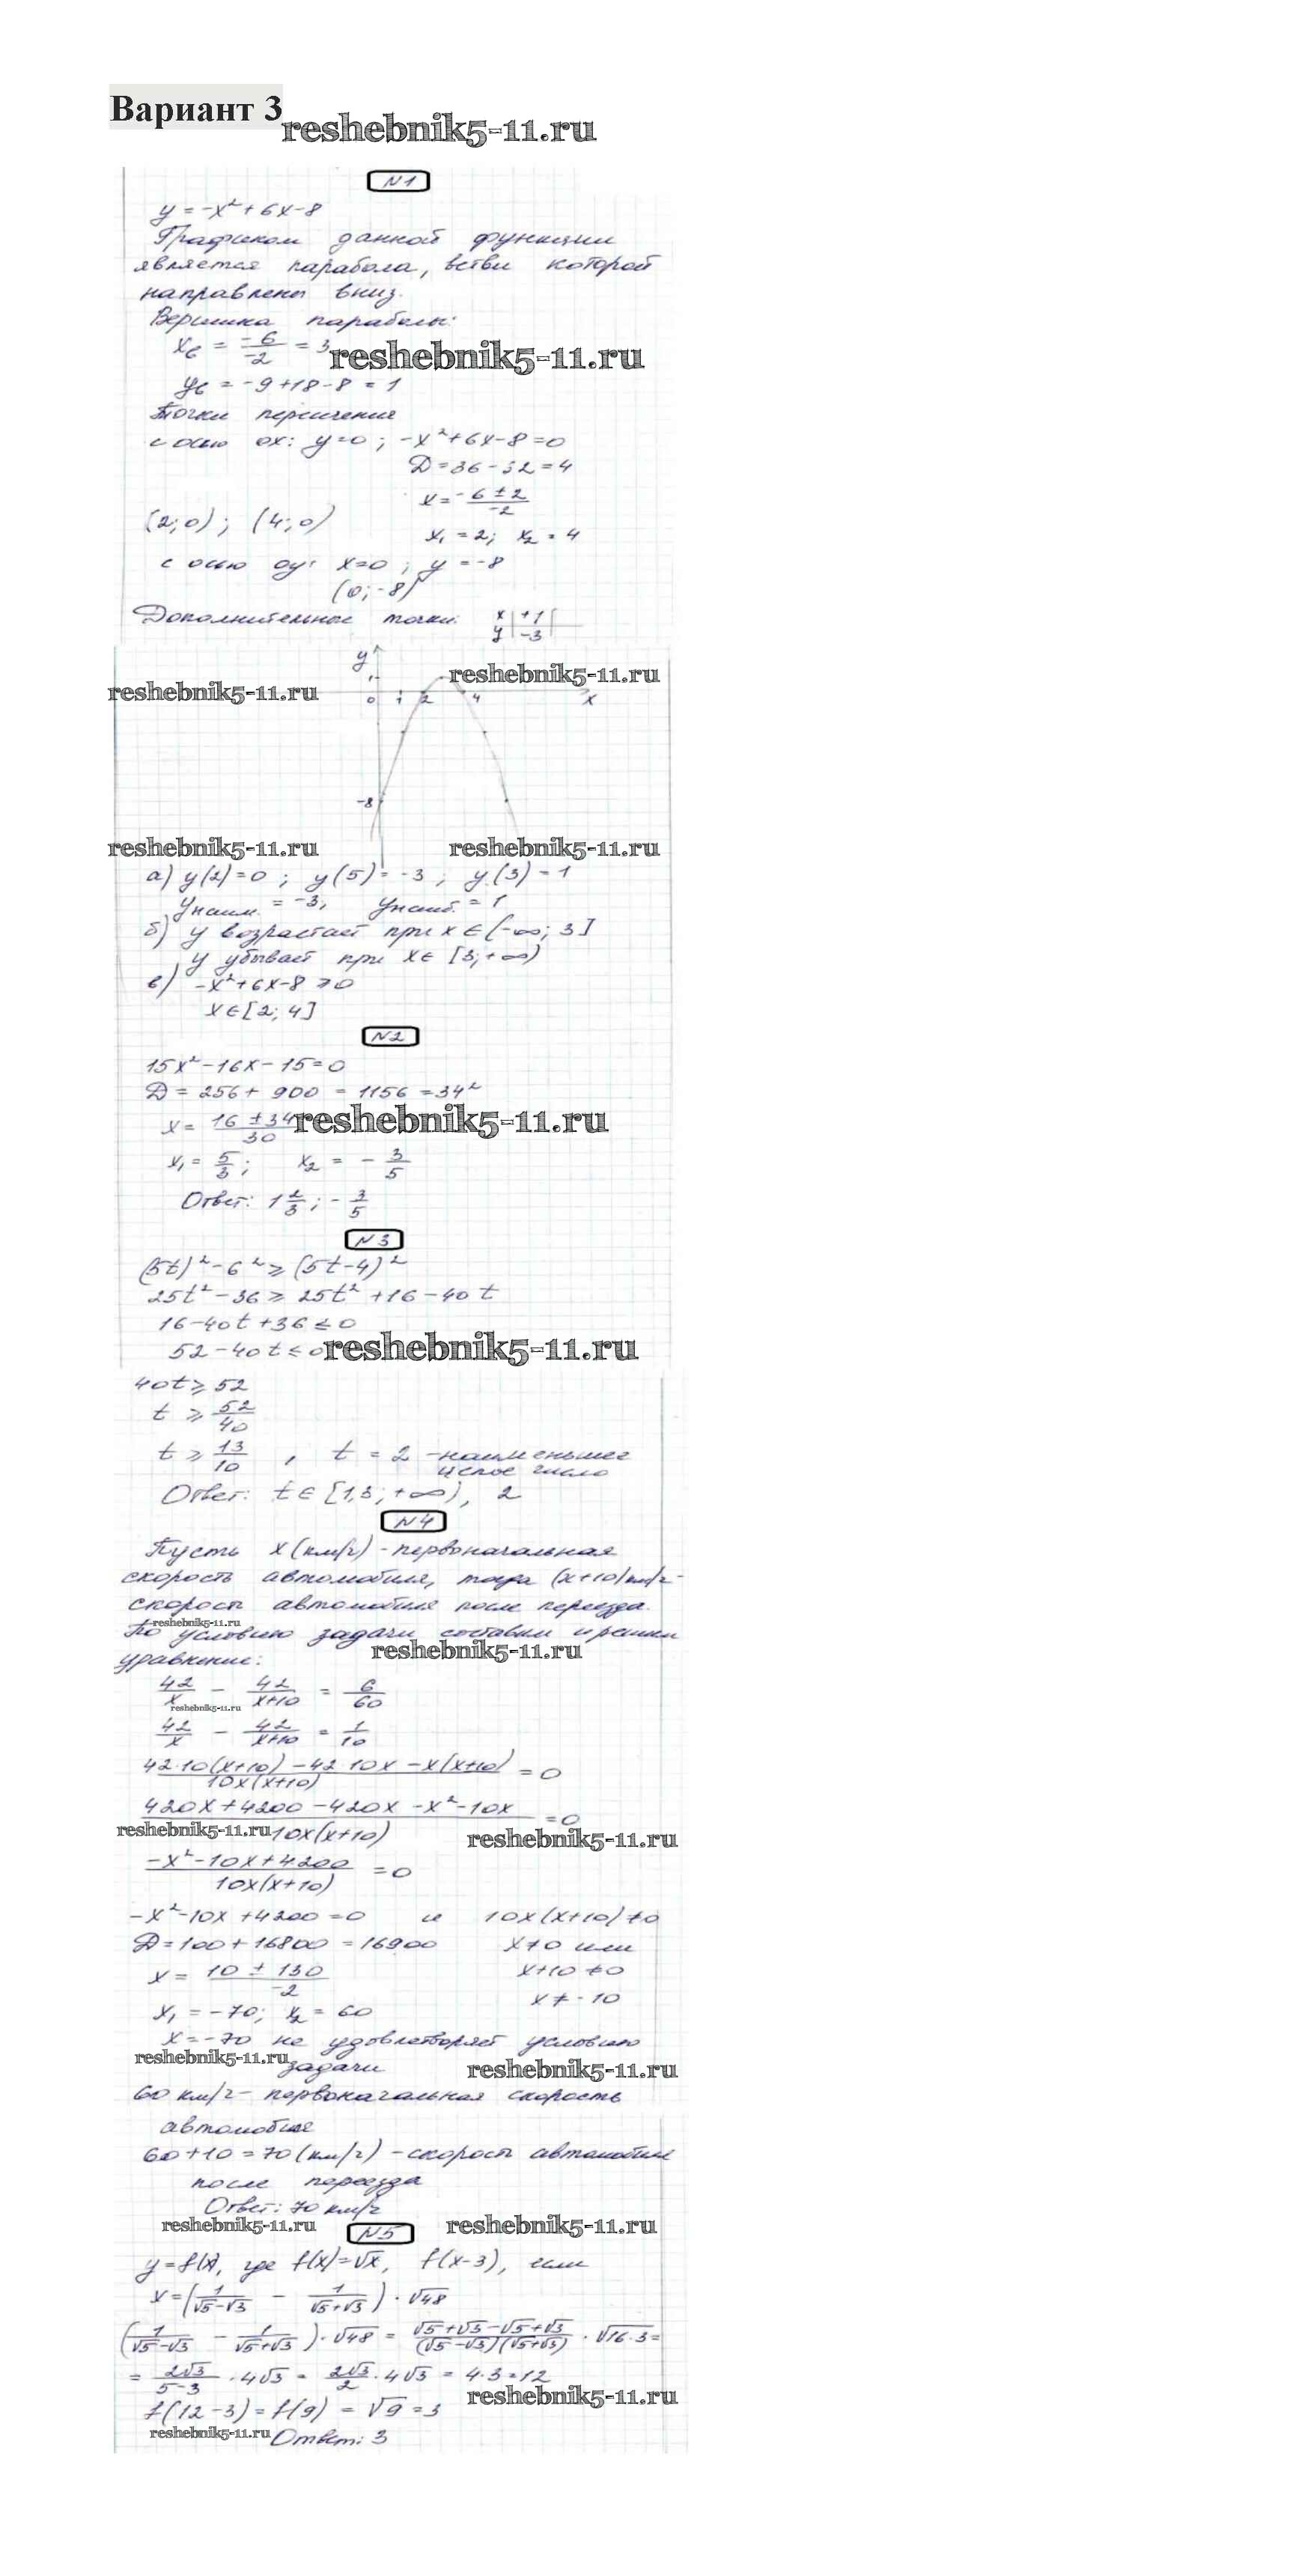 Вариант 3
reshebnik5-11.ru
N1
y = -x² + 6x - 8
Графиком данной функции
является парабола, ветви которой
направлены вниз.
Вершина параболы:
x_в = -6/-2 = 3
reshebnik5-11.ru
y_в = -9 + 18 - 8 = 1
Точки пересечения
с осью ox: y=0; -x²+6x-8=0
D = 36 - 32 = 4
x = -6±2/-2
(2;0); (4;0)
x₁ = 2; x₂ = 4
с осью oy: x=0; y = -8
(0;-8)
Дополнительные точки:
x | +1
y | -3
y
1
reshebnik5-11.ru
reshebnik5-11.ru
0 1 2 4 x
-8
reshebnik5-11.ru reshebnik5-11.ru
а) y(2)=0; y(5)=-3; y(3)=1
y наим. = -3, y наиб. = 1
б) y возрастает при x∈(-∞; 3]
y убывает при x∈[3;+∞)
в) -x²+6x-8≥0
x∈[2; 4]
N2
15x²-16x-15=0
D = 256 + 900 = 1156 = 34²
x = 16±34/30
reshebnik5-11.ru
x₁ = 5/3; x₂ = -3/5
Ответ: 1 2/3; -3/5
N3
(5t)²-6²≥(5t-4)²
25t²-36≥25t²+16-40t
16-40t+36≤0
52-40t≤0
reshebnik5-11.ru
40t≥52
t≥52/40
t≥13/10, t = 2 - наименьшее
целое число
Ответ: t∈[1,3;+∞), 2
N4
Пусть x (км/ч) - первоначальная
скорость автомобиля, тогда (x+10)км/ч -
скорость автомобиля после переезда.
reshebnik5-11.ru
По условию задачи составим и решим
reshebnik5-11.ru
уравнение:
42/x - 42/x+10 = 6/60
reshebnik5-11.ru
42/x - 42/x+10 = 1/10
42·10(x+10)-42·10x-x(x+10)/10x(x+10) = 0
420x+4200-420x-x²-10x/10x(x+10) = 0
reshebnik5-11.ru reshebnik5-11.ru
-x²-10x+4200/10x(x+10) = 0
-x²-10x+4200=0 и 10x(x+10)≠0
D=100+16800=16900 x≠0 или
x = 10±130/-2 x+10≠0
x≠-10
x₁ = -70; x₂ = 60
x=-70 не удовлетворяет условию
reshebnik5-11.ru задачи reshebnik5-11.ru
60 км/ч - первоначальная скорость
автомобиля
60+10=70(км/ч) - скорость автомобиля
после переезда
Ответ: 70 км/ч
reshebnik5-11.ru reshebnik5-11.ru
N5
y=f(x), где f(x)=√x, f(x-3), если
x=(1/√5-√3 - 1/√5+√3)·√48
(1/√5-√3 - 1/√5+√3)·√48 = √5+√3-√5+√3/(√5-√3)(√5+√3)·√16·3=
= 2√3/5-3·4√3 = 2√3/2·4√3 = 4·3=12
reshebnik5-11.ru
f(12-3)=f(9)=√9=3
reshebnik5-11.ru Ответ: 3